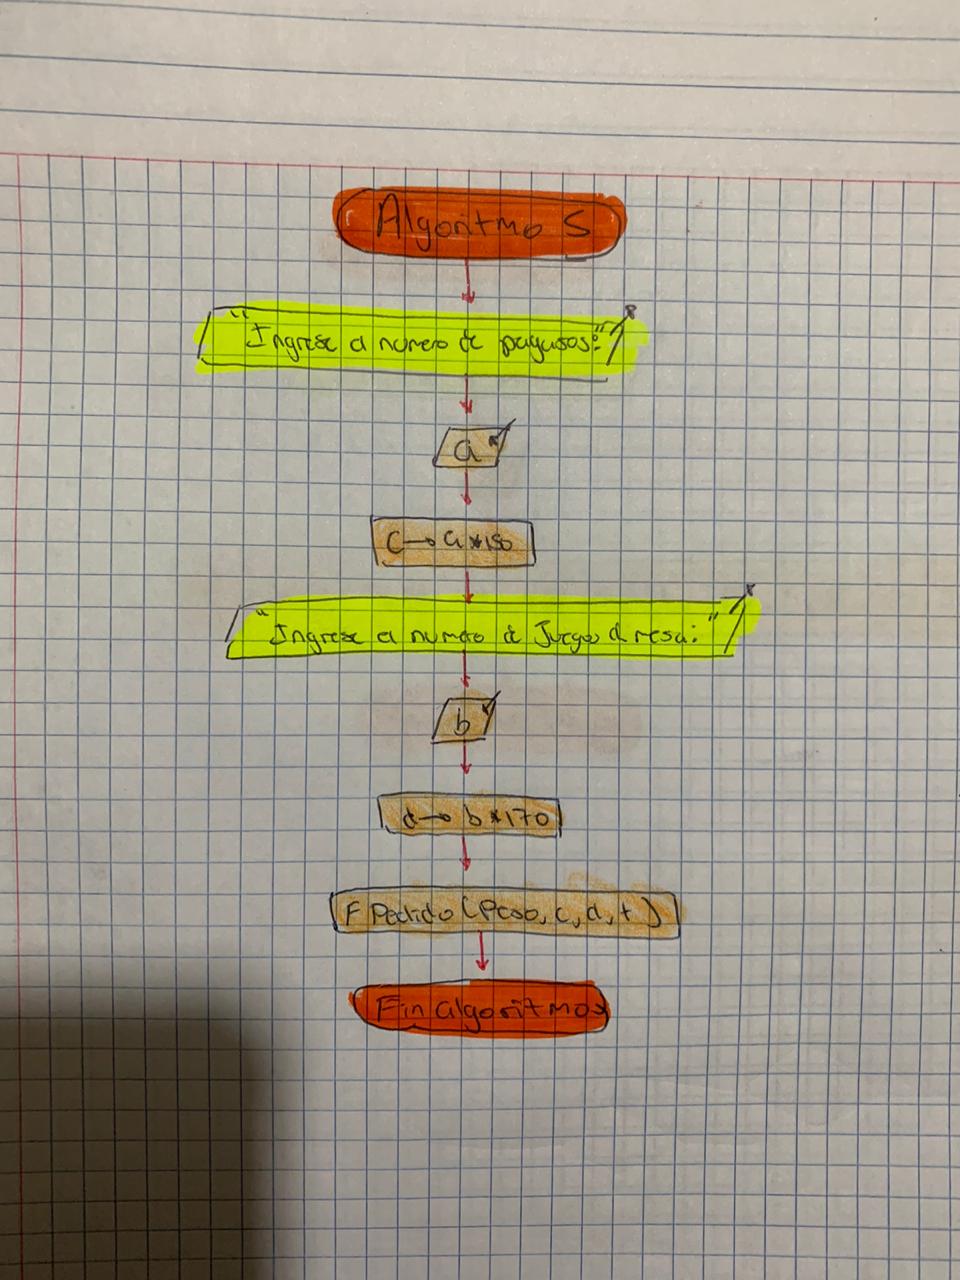 Algoritmo S
"Ingrese el numero de payasos:"
a
C→a*150
"Ingrese el numero de Juegos d mesa:"
b
d→ b*170
F Pedido (Peso, c, d, t)
Fin algoritmos